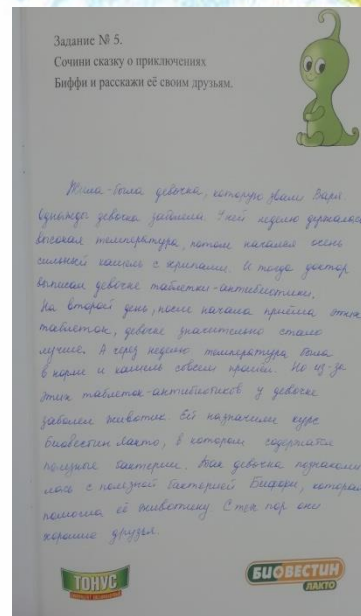 Задание № 5.
Сочини сказку о приключениях
Биффи и расскажи её своим друзьям.
Жила-была девочка, которую звали Варя.
Однажды девочка заболела. У неё неделю держалась
высокая температура, потом начался очень
сильный кашель с хрипами. И тогда доктор
выписал девочке таблетки-антибиотики.
На второй день, после начала приёма этих
таблеток, девочке значительно стало
лучше. А через неделю температура была
в норме и кашель совсем прошёл. Но из-за
этих таблеток-антибиотиков у девочки
заболел животик. Ей назначили курс
Биовестин Лакто, в котором содержатся
полезные бактерии. Так девочка познакоми
лась с полезной бактерией Биффи, которая
помогла её животику. С тех пор они
хорошие друзья.
ТОНУС
БИОВЕСТИН
ЛАКТО